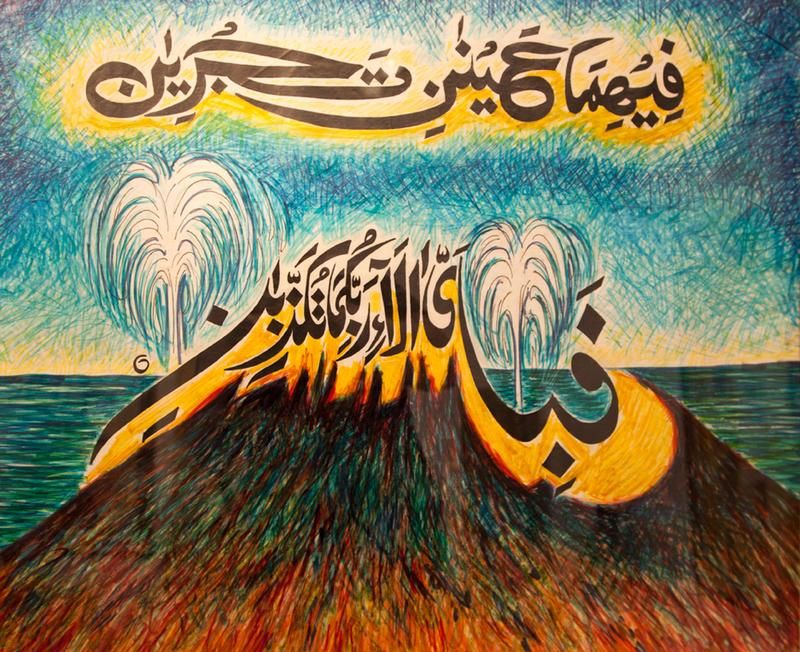 فِيْهِمَا عَيْنٰنِ تَجْرِيٰنِ
فَبِاَىِّ اٰلَآءِ رَبِّكُمَا تُكَذِّبٰنِ